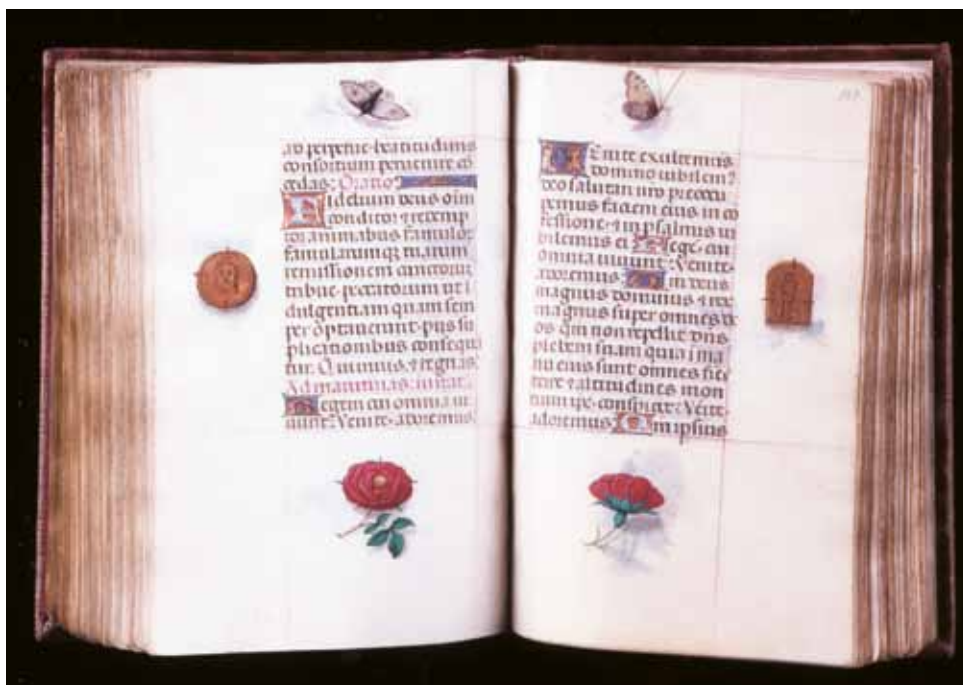 ad perpetue beatitudinis
consortium peruenire cō
cedas: Oratio
Fidelium deus oīm
conditor ⁊ redemp
tor animabus famuloꝝ
famularumqꝫ tuarum
remissionem cunctorū
tribue peccatorum ut ī
dulgentiam quam sem
per optauerunt piis su
plicationibus consequā
tur. Q uiuis ⁊ regnas
Ad matutinas: inuitat:
Regem cui omnia ui
uunt: Venite adoremus
Uenite exultemus
domino iubilem⁹
deo salutari nr̄o preoccu
pemus faciem eius in cō
fessione ⁊ in psalmis iu
bilemus ei Regē cui
omnia uiuunt: Venite
adoremus Qm̄ deus
magnus dominus ⁊ rex
magnus super omnes de
os qm̄ non repellit dn̄s
plebem suam quia ī ma
nu eius sunt omnes fīes
terre ⁊ altitudines mon
tium ipē conspicit: Venite
adoremus Qm̄ ipsius